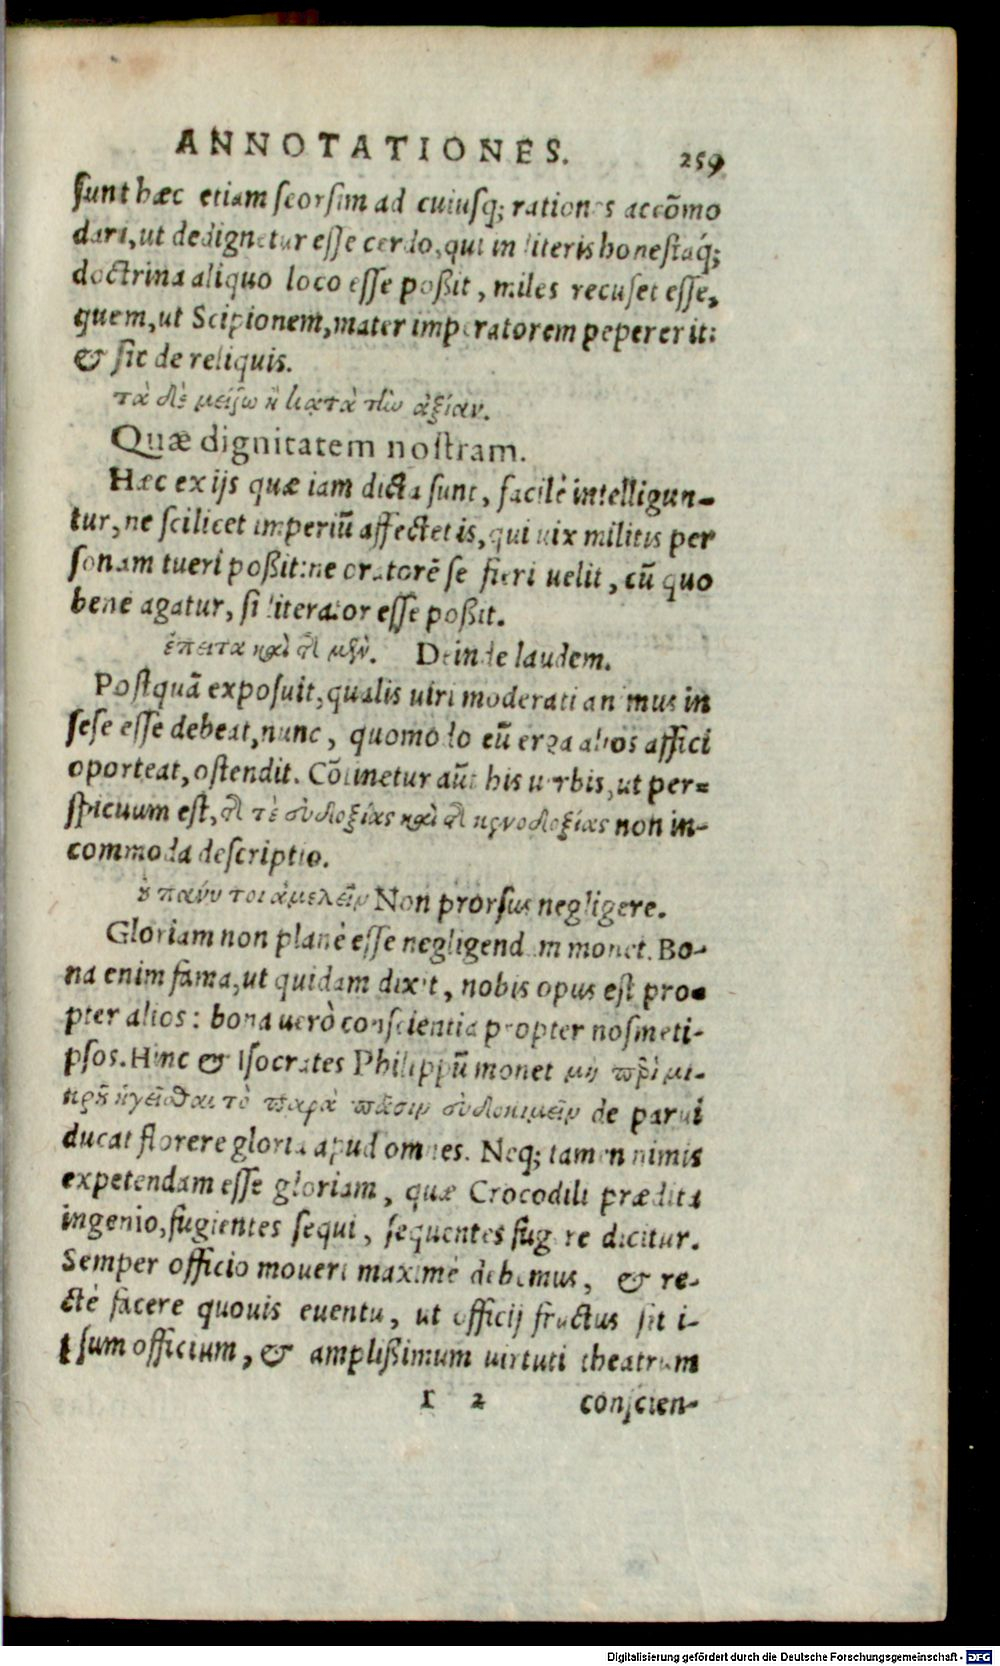 ANNOTATIONES. 259
sunt hæc etiam seorsim ad cuiusq; rationes accõmo
dari, ut dedignetur esse cerdo, qui in literis honestaq́;
doctrina aliquo loco esse poßit, miles recuset esse,
quem, ut Scipionem, mater imperatorem pepererit:
& sic de reliquis.
τὰ δὲ μείζω ἢ κατὰ τὴν ἀξίαν.
Quæ dignitatem nostram.
Hæc ex ijs quæ iam dicta sunt, facilè intelligun-
tur, ne scilicet imperiũ affectet is, qui uix militis per
sonam tueri poßit: ne oratorẽ se fieri uelit, cũ quo
bene agatur, si literator esse poßit.
ἔπειτα καὶ δὲ μὴν. Deinde laudem.
Postquã exposuit, qualis uiri moderati animus in
sese esse debeat, nunc, quomodo eũ erga alios affici
oporteat, ostendit. Cõtinetur aũt his uerbis, ut per=
spicuum est, τε εὐδοξίας καὶ κενοδοξίας non in-
commoda descriptio.
οὐ πάνυ τοι ἀμελεῖν Non prorsus negligere.
Gloriam non planè esse negligendam monet. Bo-
na enim fama, ut quidam dixit, nobis opus est pro-
pter alios: bona uerò conscientia propter nosmeti-
psos. Hinc & Isocrates Philippũ monet μὴ περὶ μι-
κροῦ ἡγεῖσθαι τὸ παρὰ πᾶσιν εὐδοκιμεῖν de parui
ducat florere gloria apud omnes. Neq; tamen nimis
expetendam esse gloriam, quæ Crocodili prædita
ingenio, fugientes sequi, sequentes fugere dicitur.
Semper officio moueri maximè debemus, & re-
ctè facere quouis euentu, ut officij fructus sit i-
psum officium, & amplißimum uirtuti theatrum
r 2 conscien-
Digitalisierung gefördert durch die Deutsche Forschungsgemeinschaft - DFG